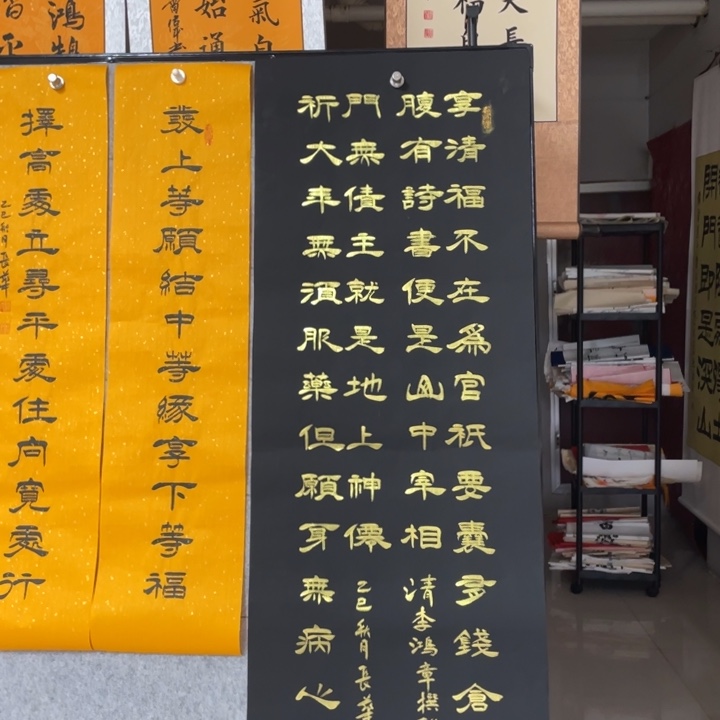 享清福不在為官祇要囊多錢倉
腹有詩書便是山中宰相
清李鴻章撰
門無債主就是地上神僊
乙巳秋月長
祈大年無須服藥但願身無病心
發上等願結中等緣享下等福
擇高處立尋平處住向寬處行
乙巳秋月長
氣自
始通
鴻鵠
長
福
開門即是深山